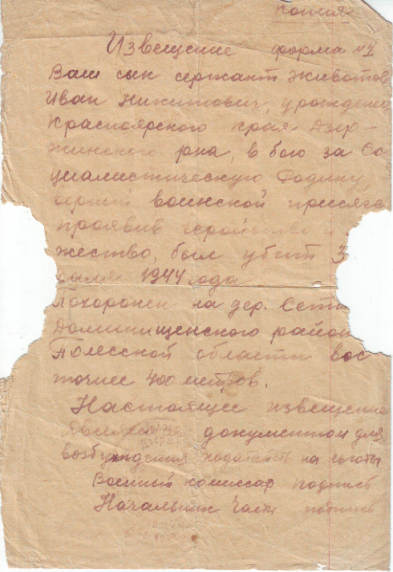 Копия
Извещение форма №2
Ваш сын сержант Животов
Иван Никитович, урожденец
Красноярского края Дзер-
жинского р-на, в бою за Со
циалистическую Родину,
верный воинской присяге
проявив геройство и
жество, был убит 3
июля 1944 года
Похоронен на дер.
Домановищенского район
Полесской области вос
точнее 400 метров.
Настоящее извещение
документом для
возбуждения ходатайств на льготы
Военный комиссар подпись
Начальник части подпись